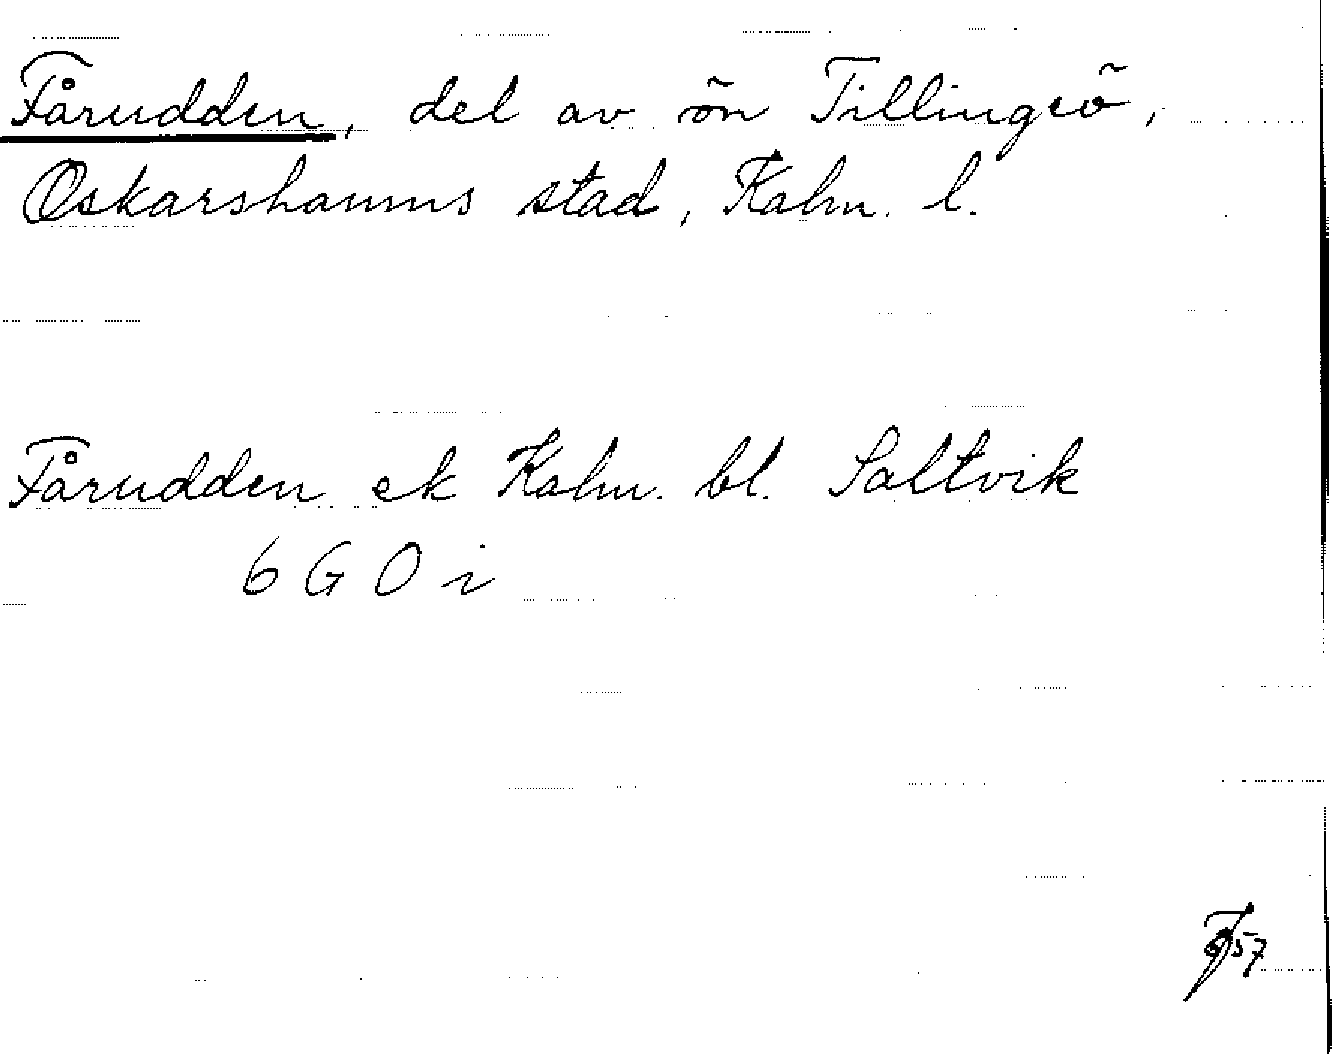 Fårudden, del av ön Tillingeö,
Oskarshamns stad, Kalm. l.
Fårudden ek Kalm. bl. Saltvik
6 G 0 i
57